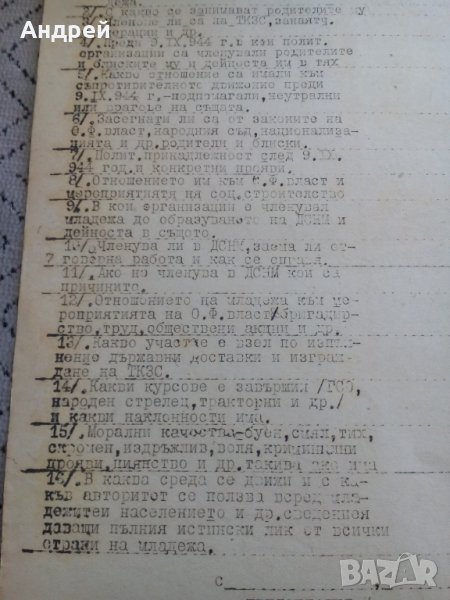 Андрей
дежа.
2/. С какво се занимават родителите му
членове ли са на ТКЗС, занаятч.
операции и др.
4/. Преди 9.IX.944 г. в кои полит.
организации са членували родителите
и близките му и дейноста им в тях
5/. Какво отношение са имали към
съпротивителното движение преди
9.IX.944 г.-подпомагали, неутрални
или врагове на същата.
6/. Засегнати ли са от законите на
О.Ф. власт, народния съд, национализа-
цията и др. родители и близки.
7/. Полит. принадлежност след 9.IX.
944 год. и конкретни прояви.
8/. Отношението им към О.Ф. власт и
мероприятията ня соц. строителство
9/. В кои организации е членувал
младежа до образуването на ДСНМ и
дейноста в същото.
10/ Членува ли в ДСНМ, заема ли от-
говорна работа и как се справя.
11/. Ако не членува в ДСНМ кои са
причините.
12/. Отношението на младежа към ме-
роприятията на О.Ф. власт/бригадир-
ство, труд, обществени акции и др.
13/. Какво участие е взел по изпъл-
нение държавни доставки и изграж-
дане на ТКЗС.
14/. Какви курсове е завършил /ГСО,
народен стрелец, тракторни и др./
и какви наклонности има.
15/. Морални качества-буен, смял, тих,
скромен, издръжлив, воля, криминални
прояви, пиянство и др. такива ако има
16/. В каква среда се движи и с ка-
къв авторитет се ползва всред мла-
дежитеи населението и др. сведения
даващи пълния истински лик от всички
страни на младежа.
С
BAZAR